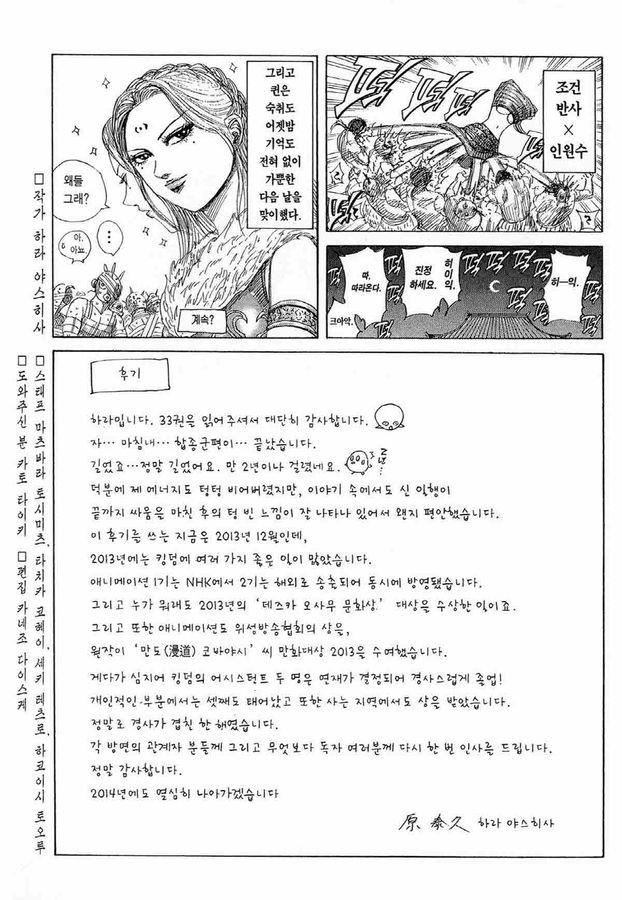 조건
반사
×
인원수
퍽
퍽
퍽
퍽
그리고
퀸은
숙취도
어젯밤
기억도
전혀 없이
가뿐한
다음 날을
맞이했다.
왜들
그래?
…
아,
아뇨
계속?
히—익.
히이익.
진정
하세요.
따,
따라온다.
크아악.
퍽
퍽
퍽
퍽
□작가 하라 야스히사
□스태프 마츠바라 토시미츠, 타치카 코헤이, 세키 테츠로, 하코이시 토오루
□도와주신 분 카토 타이키 □편집 카네조 다이스케
후기
하라입니다. 33권을 읽어주셔서 대단히 감사합니다.
자… 마침내… 합종군편이… 끝났습니다.
길었죠…정말 길었어요. 만 2년이나 걸렸네요.
덕분에 제 에너지도 텅텅 비어버렸지만, 이야기 속에서도 신 일행이
끝까지 싸움을 마친 후의 텅 빈 느낌이 잘 나타나 있어서 왠지 편안했습니다.
이 후기를 쓰는 지금은 2013년 12월인데,
2013년에는 킹덤에 여러 가지 좋은 일이 많았습니다.
애니메이션 1기는 NHK에서 2기는 해외로 송출되어 동시에 방영됐습니다.
그리고 누가 뭐래도 2013년의 '데즈카 오사무 문화상' 대상을 수상한 일이죠.
그리고 또한 애니메이션도 위성방송협회의 상을,
원작이 '만도(漫道) 코바야시' 씨 만화대상 2013을 수여했습니다.
게다가 심지어 킹덤의 어시스턴트 두 명은 연재가 결정되어 경사스럽게 졸업!
개인적인 부분에서는 셋째도 태어났고 또한 사는 지역에서도 상을 받았습니다.
정말로 경사가 겹친 한 해였습니다.
각 방면의 관계자 분들께 그리고 무엇보다 독자 여러분께 다시 한 번 인사를 드립니다.
정말 감사합니다.
2014년에도 열심히 나아가겠습니다
原 泰久 하라 야스히사